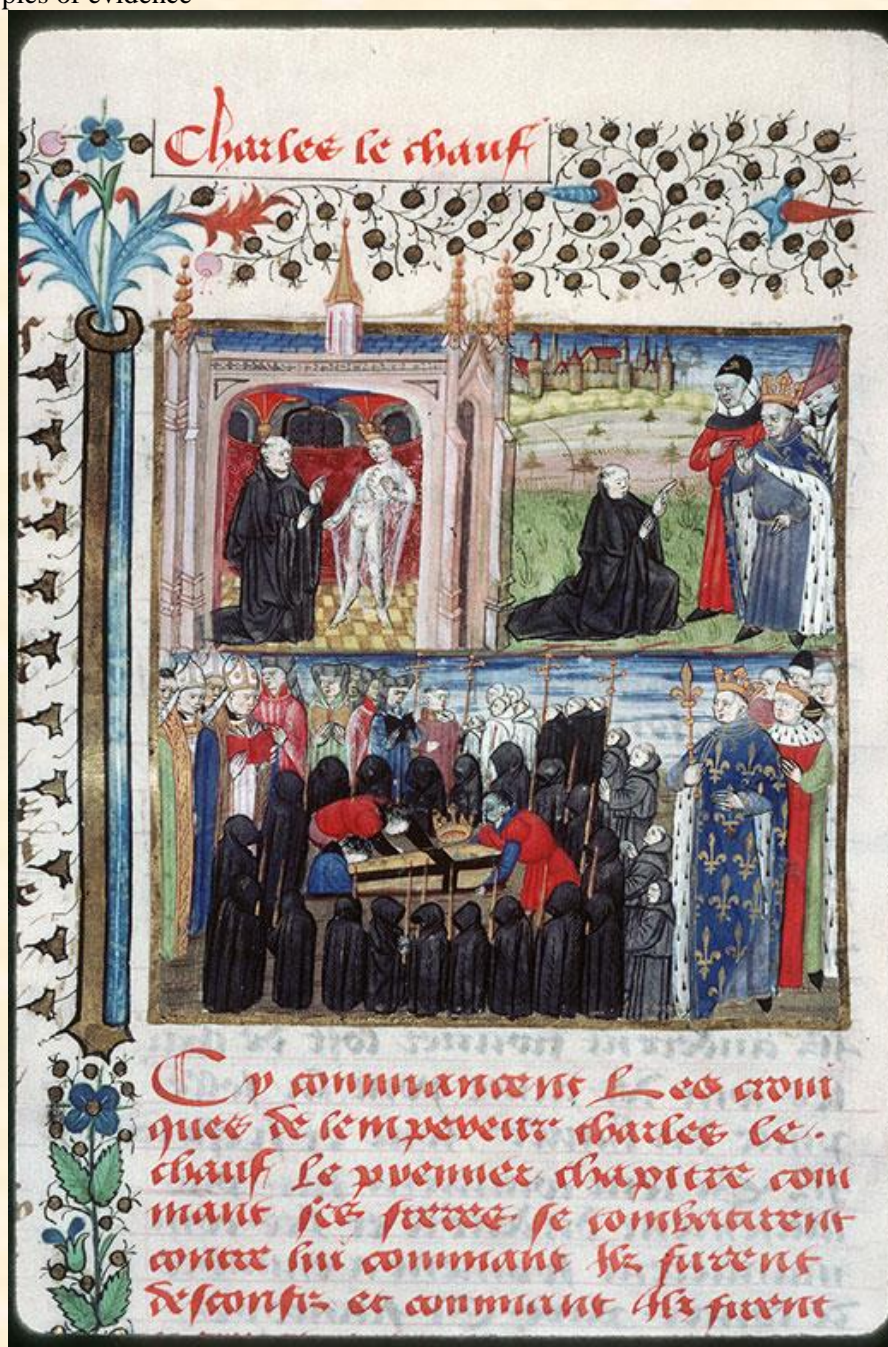 ples of evidence
Charles le chauf
Cy commancent Les croni
ques de lempereur charles le
chauf Le premier chapitre com
mant ses freres se combatirent
contre lui commant Ilz furent
desconfiz et commant Ilz furent